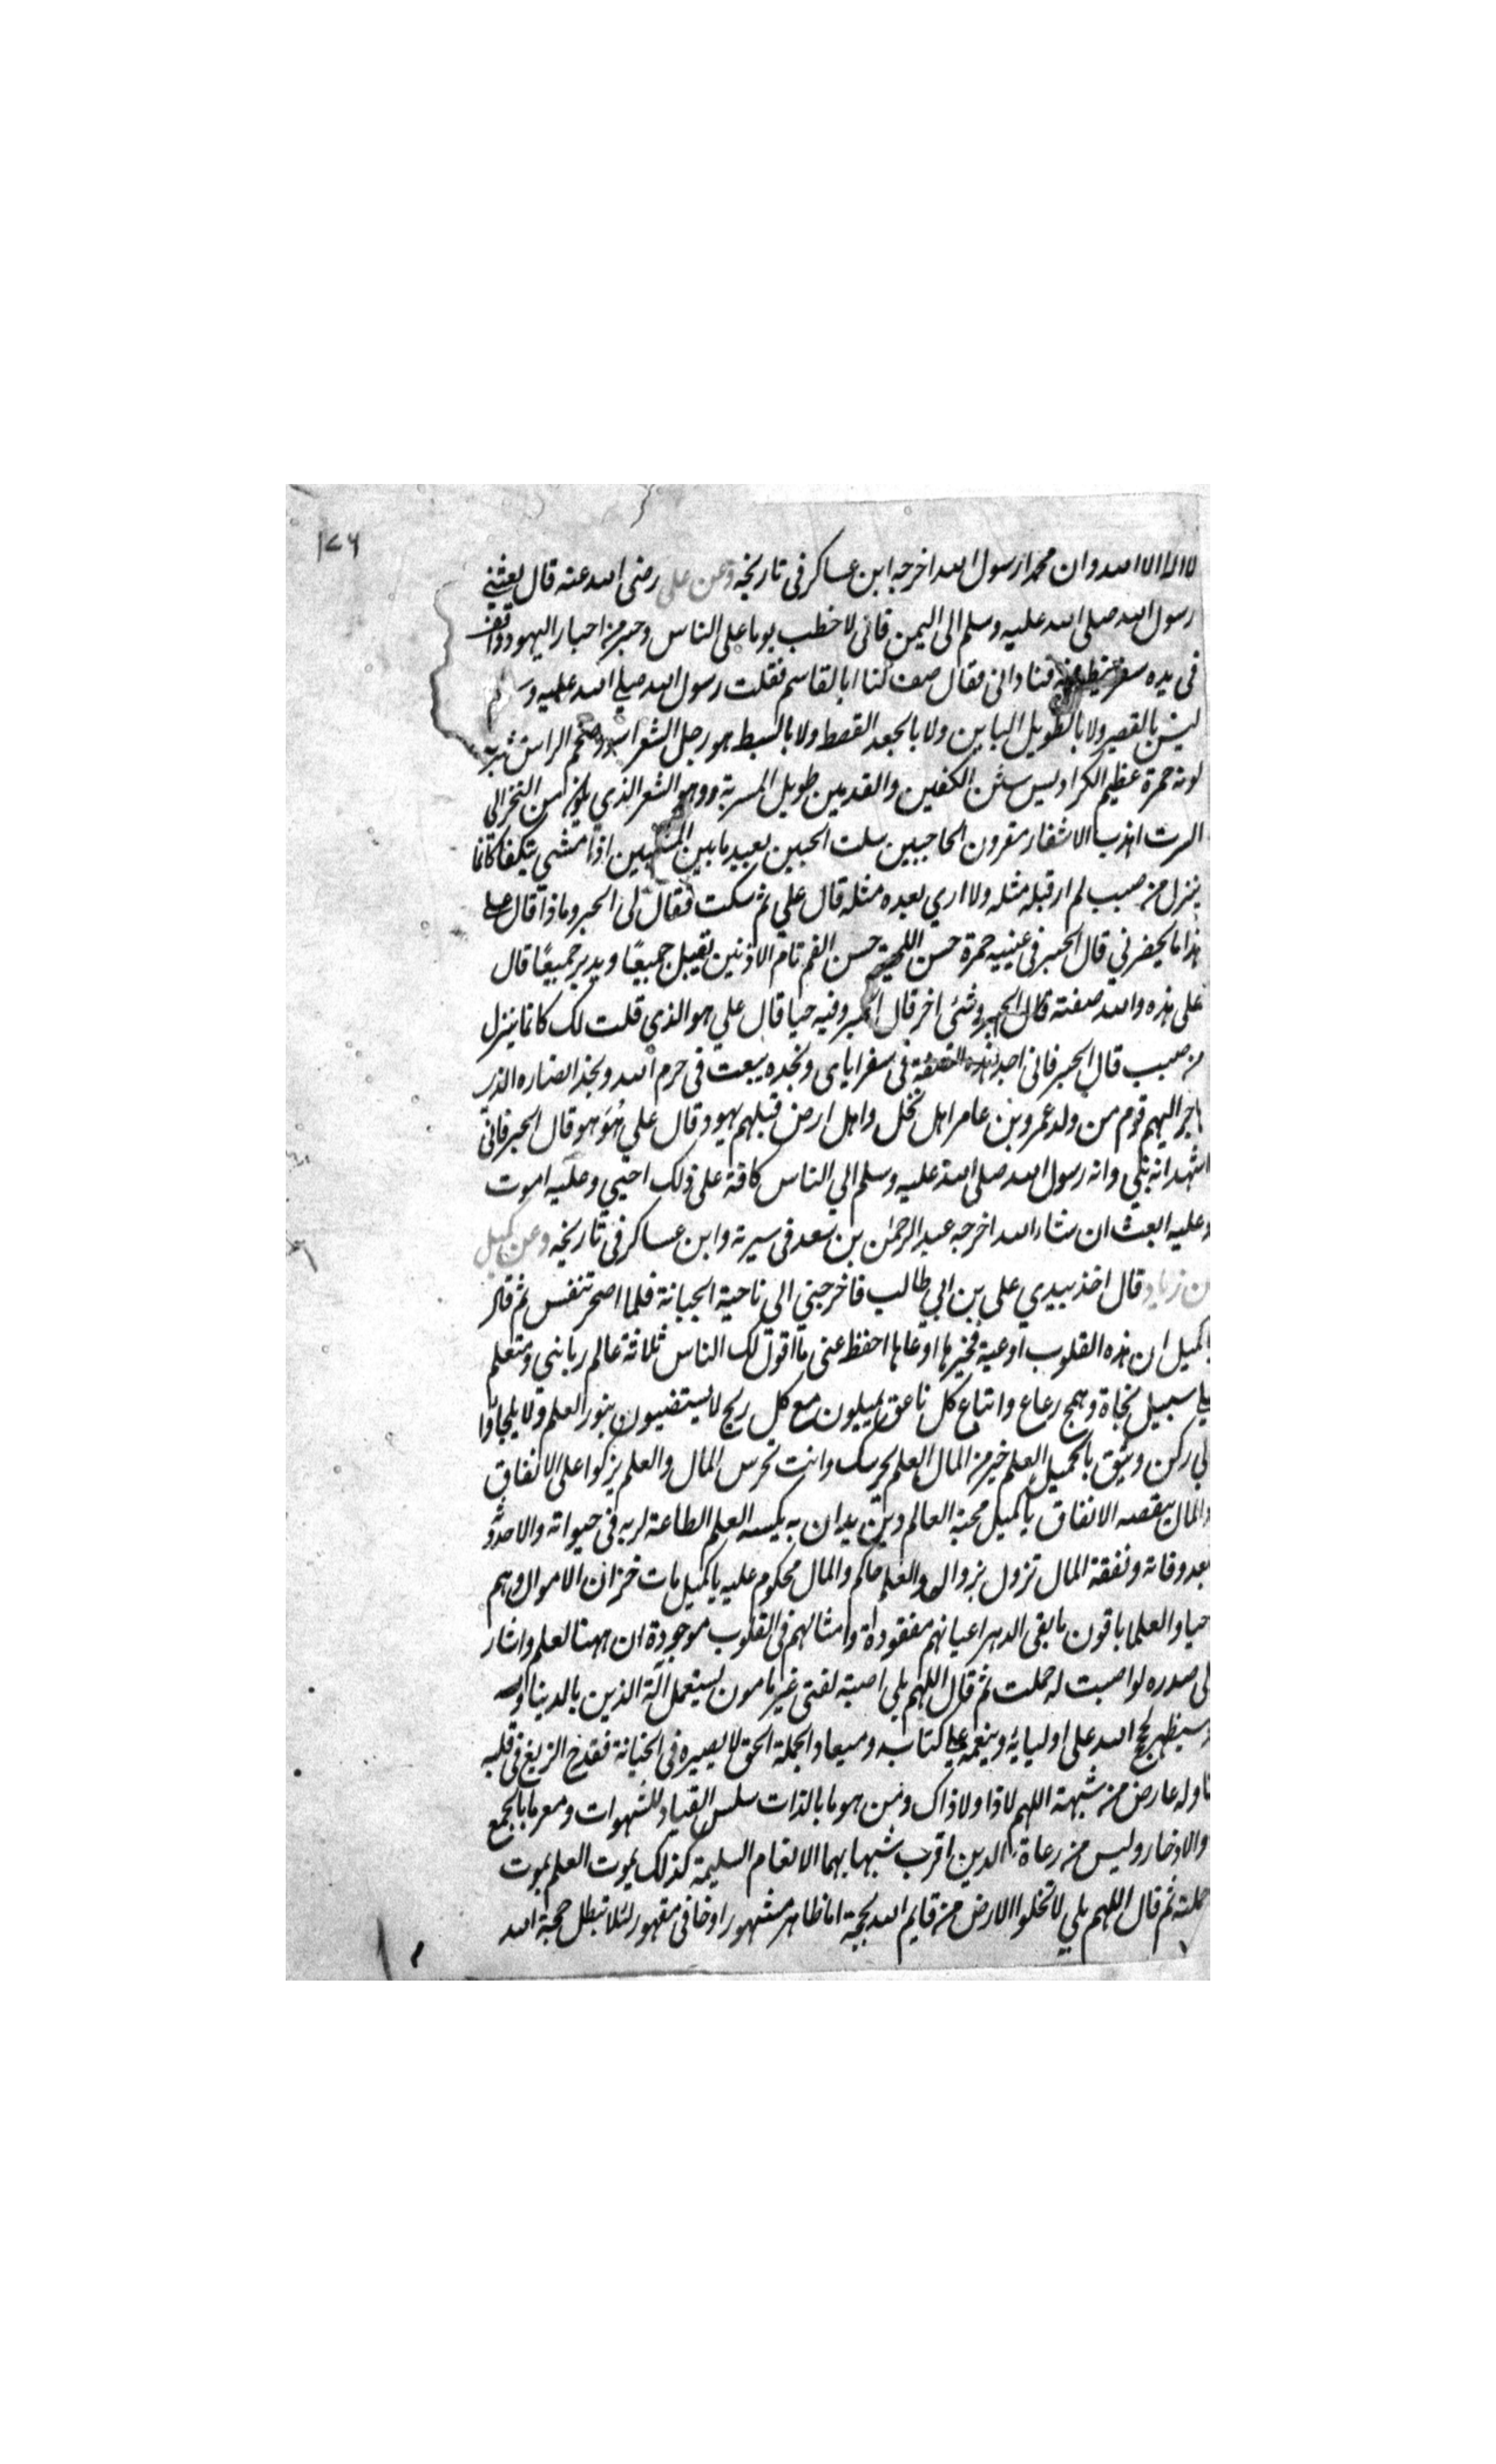 ١٧٦
لا اله الا الله وان محمدا رسول الله اخرجه ابن عساكر في تاريخه وعن علي رضي الله عنه قال بعثني
رسول الله صلى الله عليه وسلم الى اليمن فاني لاخطب يوما على الناس وحبر من احبار اليهود واقف
في يده سفر ينظر فيه فناداني فقال صف لنا ابا القاسم فقلت رسول الله صلى الله عليه وسلم
ليس بالقصير ولا بالطويل الباين ولا بالجعد القطط ولا بالسبط هو رجل الشعر اسود ضخم الراس مشرب
لونه حمرة عظيم الكراديس شثن الكفين والقدمين طويل المسربة وهو الشعر الذي يكون من النحر الى
السرة اهدب الاشفار مقرون الحاجبين صلت الجبين بعيد ما بين المنكبين اذا مشى يتكفا كانما
ينزل من صبب لم ار قبله مثله ولا اري بعده مثله قال علي ثم سكت فقال لي الحبر وماذا قال علي
هذا ما يحضرني قال الحبر في عينيه حمرة حسن اللحية حسن الفم تام الاذنين يقبل جميعًا ويدبر جميعًا قال
علي هذه والله صفته قال الحبر وشئ اخر قال الحبر وفيه حيا قال علي هو الذي قلت لك كانما ينزل
من صبب قال الحبر فاني اجد هذه الصفة في سفر اباي ونجده يبعث في حرم الله ونجد انصاره الذين
هاجر اليهم قوم من ولد عمرو بن عامر اهل نخل واهل ارض قبلهم يهود قال علي هُوَ هو قال الحبر فاني
اشهد انه نبي وانه رسول الله صلى الله عليه وسلم الي الناس كافة على ذلك احيي وعليه اموت
وعليه ابعث ان شاء الله اخرجه عبد الرحمن بن سعد في سيرته وابن عساكر في تاريخه وعن كميل
بن زياد قال اخذ بيدي علي بن ابي طالب فاخرجني الى ناحية الجبانة فلما اصحر تنفس ثم قال
يا كميل ان هذه القلوب اوعية فخيرها اوعاها احفظ عني ما اقول لك الناس ثلاثة عالم رباني ومتعلم
علي سبيل نجاة وهمج رعاع واتباع كل ناعق يميلون مع كل ريح لا يستضيون بنور العلم ولا يلجاوا
الي ركن وثيق يا كميل العلم خير من المال العلم يحرسك وانت تحرس المال والعلم يزكوا على الانفاق
والمال ينقصه الانفاق يا كميل محبة العالم دين يدان به يكسبه العلم الطاعة لربه في حيواته والاحدوثة
بعد وفاته ونفقة المال تزول بزواله والعلم حاكم والمال محكوم عليه يا كميل مات خزان الاموال وهم
احيا والعلما باقون ما بقى الدهر اعيانهم مفقوداة وامثالهم في القلوب موجودة ان ههنا لعلم واشار
الى صدره لو اصبت له حملت ثم قال اللهم بلي اصبته لفتى غير مامون يستعمل آلة الدين بالدنيا
وسيظهر لحجج الله على اوليايه وبنعمه على كتابه ومعياد الجملة الحق لا بصيره في الخيانة فقدح الزيغ في قلبه
باوله عارض من شبهة اللهم لا ذا ولا ذاك ومن هو ما بالذات سلس القياد للشهوات ومعرما بالجمع
والادخار وليس من رعاة الدين اقرب شبها بهما الانعام السليمة كذلك يموت العلم بموت
حملته ثم قال اللهم بلي لا تخلوا الارض من قايم الله بحجة اما ظاهر مشهور او خافي مقهور لئلا تبطل حجة الله